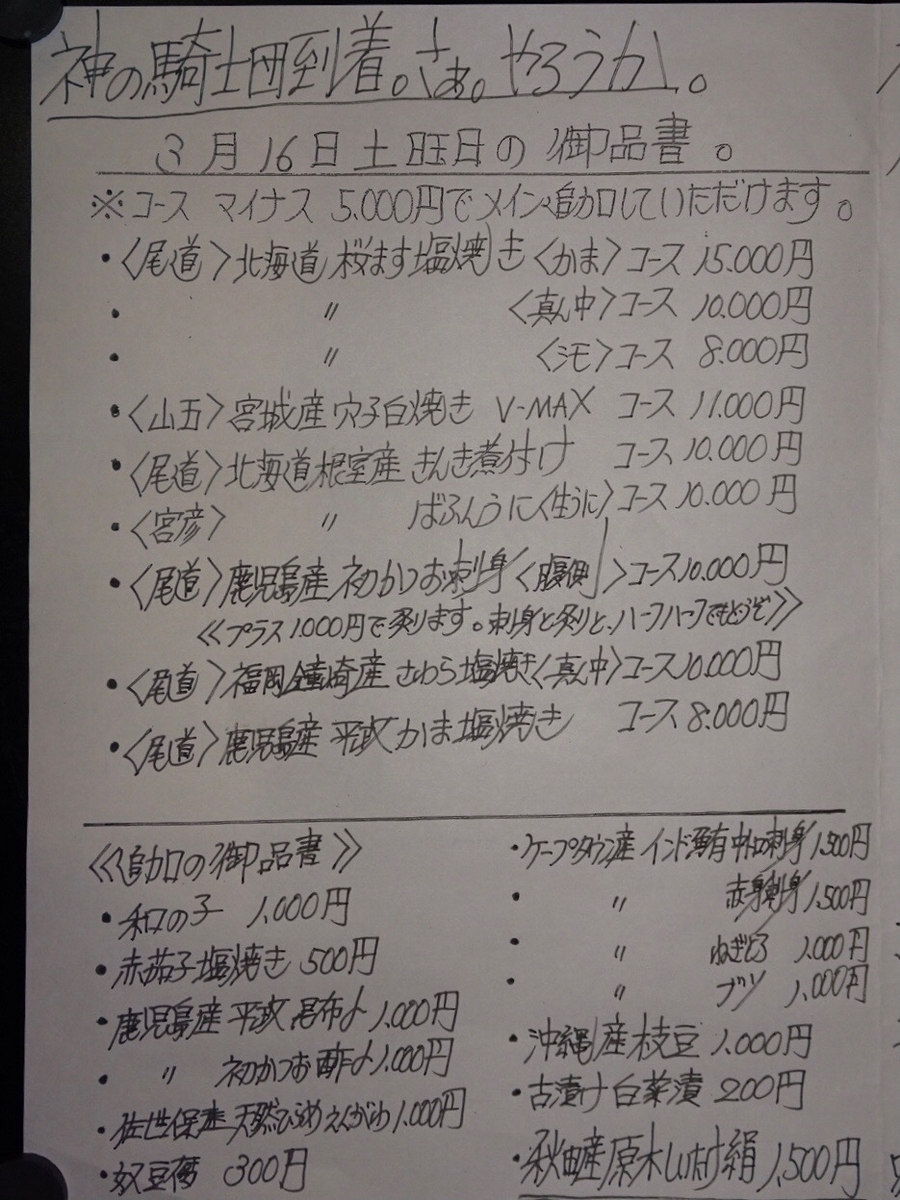 神の騎士団到着。さぁ。やろうか。
3月16日土曜日の御品書。
※コース マイナス 5.000円でメイン追加していただけます。
・〈尾道〉北海道 桜ます塩焼き〈かま〉コース 15.000円
・ 〃 〈真ん中〉コース 10.000円
・ 〃 〈シモ〉コース 8.000円
・〈山五〉宮城産穴子白焼き V-MAX コース 11.000円
・〈尾道〉北海道根室産 きんき煮付け コース 10.000円
・〈宮彦〉 〃 ばふんうに〈生うに〉コース 10.000円
・〈尾道〉鹿児島産 初かつお刺身〈腹側〉コース10.000円
《プラス1.000円で炙ります。刺身と炙りと、ハーフハーフでもどうぞ》
・〈尾道〉福岡鐘崎産 さわら塩焼き〈真ん中〉コース10.000円
・〈尾道〉鹿児島産 平政かま塩焼き コース 8.000円
《追加の御品書》
・和の子 1,000円
・赤茄子塩焼き 500円
・鹿児島産 平政 昆布〆 1,000円
・ 〃 初かつお 酢〆 1,000円
・佐世保産 天然ひらめえんがわ 1,000円
・奴豆腐 300円
・ケープタウン産 インド鮪中トロ刺身 1,500円
・ 〃 赤身刺身 1,500円
・ 〃 ねぎとろ 1,000円
・ 〃 ブツ 1,000円
・沖縄産枝豆 1,000円
・古漬け白菜漬 200円
・秋田産原木しい村絹 1,500円